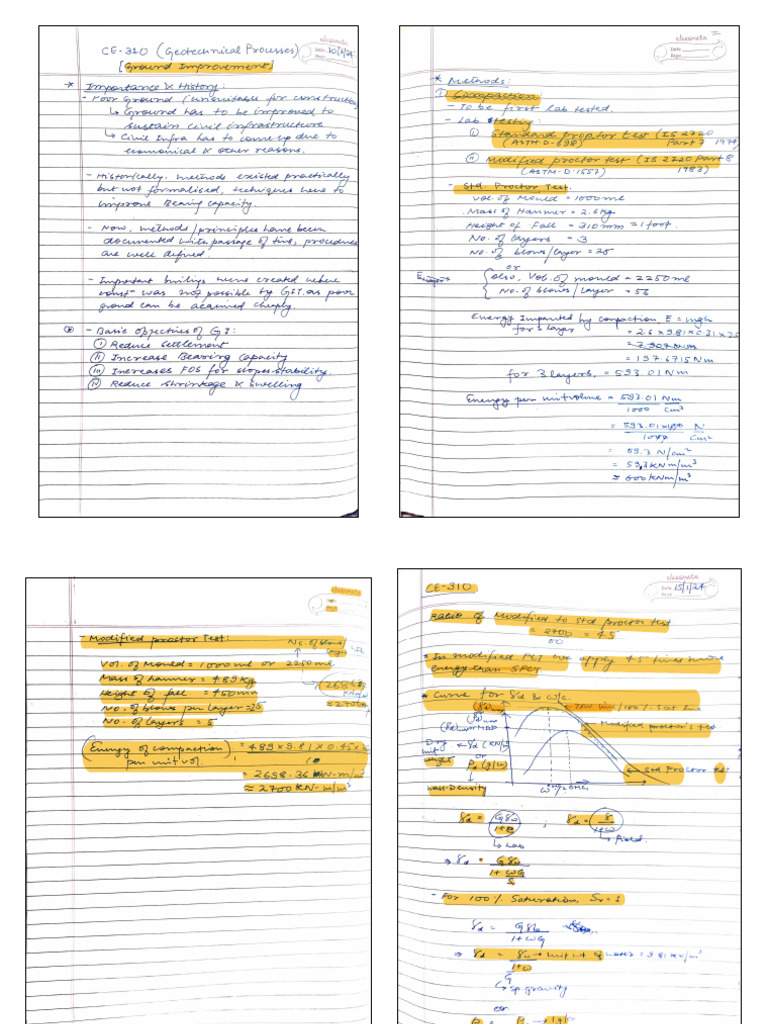 classmate
Date 10/1/24
Page
CE-310 (Geotechnical Processes)
[Ground Improvement]
* Importance & History:
- Poor Ground (Unsuitable for construction)
↳ Ground has to be improved to
sustain civil infrastructure
↳ Civil Infra has to come up due to
economical & other reasons.
- Historically, methods existed practically
but not formalised, techniques were to
improve Bearing capacity.
- Now, methods/principles have been
documented with passage of time, procedures
are well defined.
- Important builings were created where
const was not possible by GIT as poor
ground can be acquired cheaply.
- Basic Objectives of GI:
(I) Reduce settlement
(II) Increase Bearing Capacity
(III) Increases FOS for slopes stability.
(IV) Reduce shrinkage & swelling
classmate
Date
Page
* Methods:
① Compaction:
- To be first Lab tested.
- Lab testing:
(I) Standard proctor test (IS 2720
(ASTM-D-698) Part 7 1974
(II) Modified proctor test (IS 2720 Part 8
(ASTM-D-1557) 1983)
- Std. Proctor Test.
Vol. of Mould = 1000 ml
Mass of Hammer = 2.6 kg
Height of Fall = 310 mm = 1 foot.
No. of layers = 3
No. of blows/layer = 25
or
also, Vol. of mould = 2250 ml
No. of blows/layer = 56
Energy Imparted by compaction E = mgh
for 1 layer = 2.6 x 9.81 x 0.31 x 25
= 197.6715 Nm
for 3 layers, = 593.01 Nm
Energy per unit volume = 593.01 Nm
1000 cm³
= 593.01 x 100 N
1000 cm²
= 59.3 N/cm²
= 593 KN m/m³
≈ 600 KNm/m³
classmate
- Modified proctor Test:
No. of blows/
layer
Vol. of Mould = 1000 ml or 2250 ml
Mass of hammer = 4.89 kg
Height of fall = 450 mm
No. of blows per layer = 25
No. of layers = 5
≈ 2700 KN
(Energy of compaction) = 4.89 x 9.81 x 0.45 x
per unit vol.
= 2698.36 KN-m/m³
≈ 2700 KN-m/m³
CE-310
classmate
Date 15/1/24
Page
Ratio of Modified to Std proctor test
= 2700 = 4.5
600
* In modified PCT we apply 4.5 times more
energy than SPCT
* Curve for γd & w/c.
Modified proctor's test
Dry
unit
weight
γd (KN/
or
ρd (g/cc)
Std Proctor test
mass-Density
γd = Gγω ; γd = γ
1+e 1+ω
↳ Lab ↳ Field
⇒ γd = Gγω
1 + ωG
S
- For 100% Saturation, Sr = 1
γd = Gγω
1+ωG
⇒ γd = γω → unit wt of water = 9.81 KN/m³
1 + ω
G
↳ Sp. gravity
or